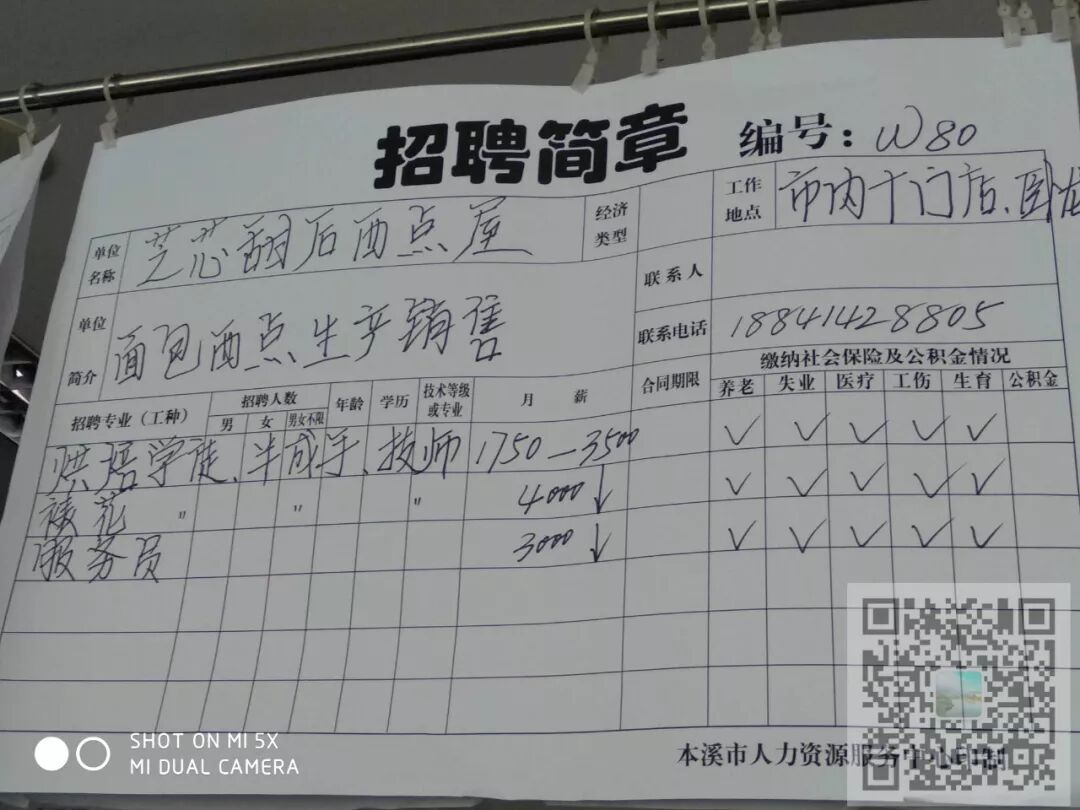 招聘简章 编号：W80
单位名称 芝芯甜后西点屋 经济类型 工作地点 市内十门店、卧龙
联系人
单位简介 面包西点生产销售 联系电话 18841428805
招聘专业（工种） 招聘人数 年龄 学历 技术等级或专业 月薪 合同期限 缴纳社会保险及公积金情况
男 女 男女不限 养老 失业 医疗 工伤 生育 公积金
烘焙学徒、半成手、技师 1750—3500 ✓ ✓ ✓ ✓ ✓
裱花 〃 〃 〃 4000↓ ✓ ✓ ✓ ✓ ✓
服务员 3000↓ ✓ ✓ ✓ ✓ ✓
本溪市人力资源服务中心印制
SHOT ON MI 5X
MI DUAL CAMERA